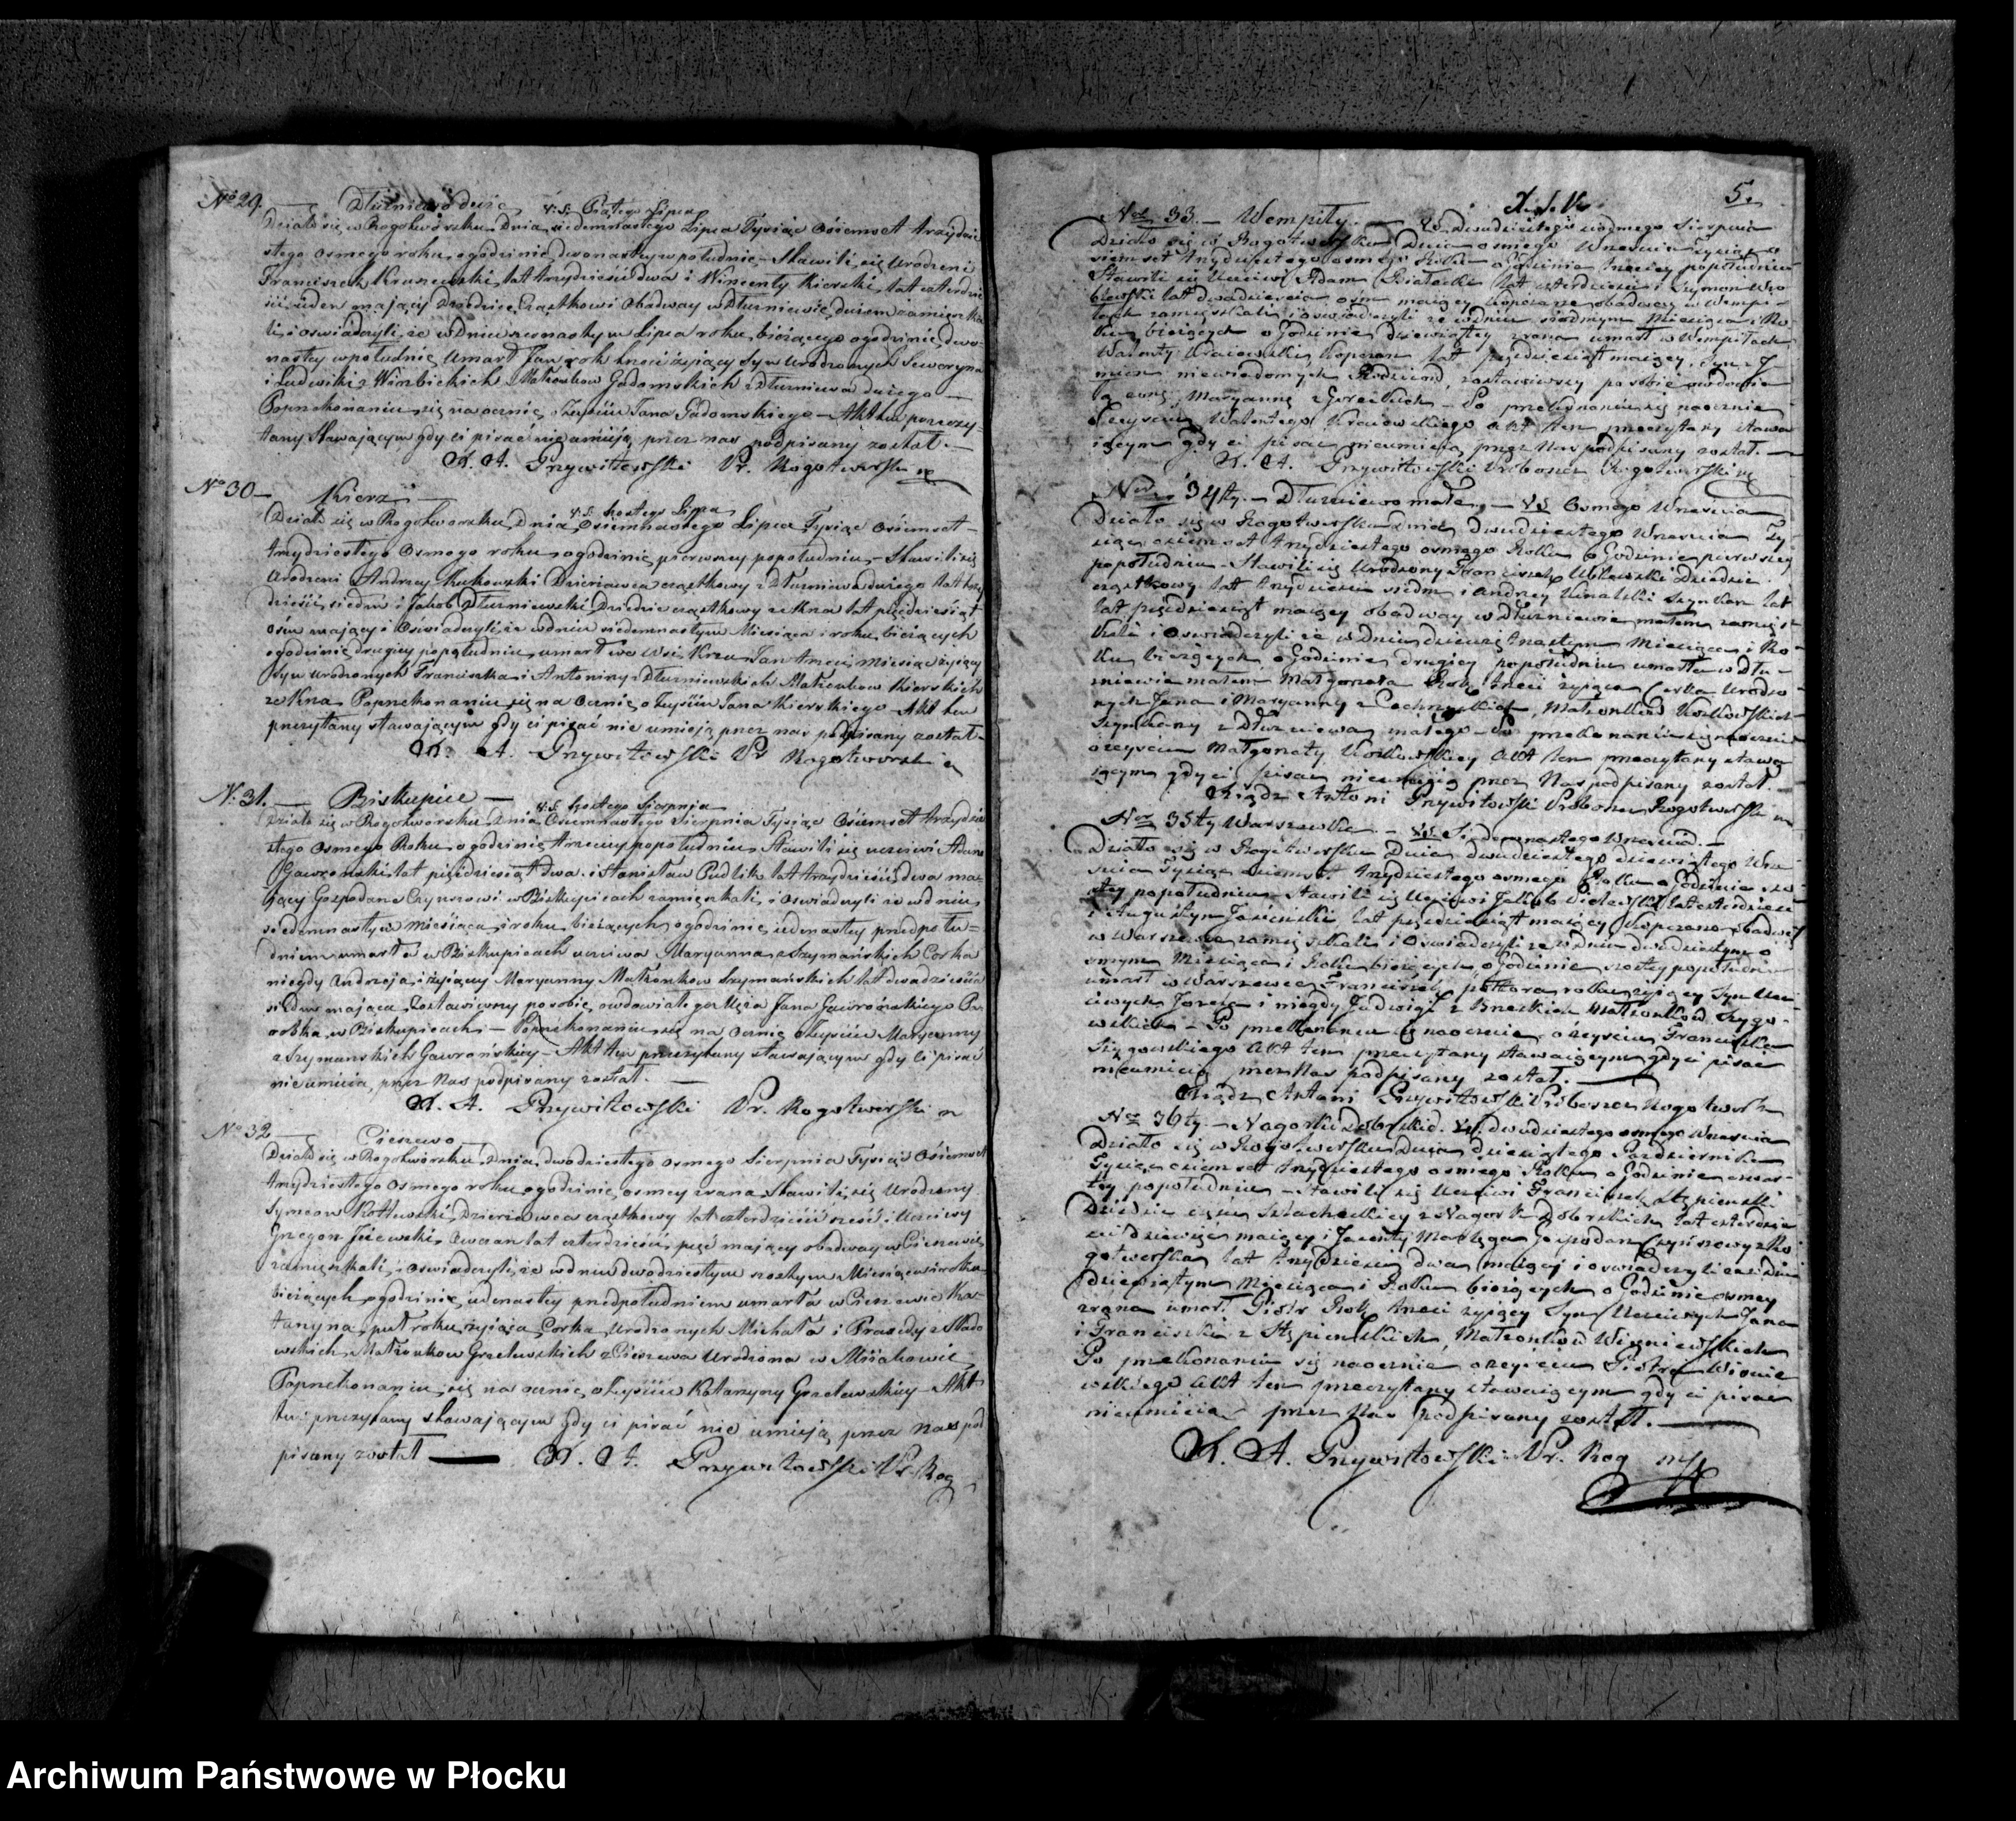 No 29. Dłużniewo duże v: s: Piątego Lipca
Działo się w Rogotworsku Dnia siedemnastego Lipca Tysiąc Osiemset trzydzie
stego osmego roku, o godzinie dwunastey w południe, – Stawili się Urodzeni
Franciszek Kraszewski, lat trzydzieści dwa i Wincenty Kierski, lat czterdzie
ści jeden mający Dziedzice Cząstkowi Obadway w Dłużniewie dużem zamieszka
li, i oswiadczyli, że w Dniu szesnastym Lipca roku bieżącego o godzinie dwu-
nastey w południe, Umarł Jan rok trzeci żyjący Syn Urodzonych Seweryna
i Ludwiki z Wierzbickich Małżonkow Gadomskich z Dłużniewa dużego —
Po przekonaniu się na ocznie, o Zeyściu Jana Gadomskiego – Akt ten przeczy-
tany Stawającym, gdy ci pisać nie umieją, przez nas podpisany został. —
X. A. Przywitowski Pr. Rogotworski
No 30 — Kierz —
v: s: szostego Lipca
Działo się w Rogotworsku, Dnia Osiemnastego Lipca Tysiąc Osiemset –
trzydziestego Osmego roku, o godzinie pierwszey popołudniu, – Stawili się
Urodzeni Andrzey Żuchowski Dzierżawca cząstkowy z Dłużniewa dużego lat trzy
dzieści siedm i Jakob Dłużniewski Dziedzic cząstkowy ze Krza lat pięćdziesiąt
ośm mający i Oświadczyli, że w dniu siedemnastym Miesiąca i roku bieżących
o godzinie drugiey popołudniu, umarł we Wsi Krzu Jan trzeci miesiąc żyiący
Syn urodzonych Franciszka i Antoniny z Dłużniewskich Małżonkow Kierskich
ze Krza Po przekonaniu się na Ocznie, o Zeyściu Jana Kierskiego – Akt ten
przeczytany stawającym gdy ci pisać nie umieją przez nas podpisany został –
X. A. Przywitowski Pr Rogotworski
N: 31. — Biskupice —
v: s: szostego Sierpnia
Działo się w Rogotworsku Dnia Osiemnastego Sierpnia Tysiąc Osiemset trzydzie
stego Osmego Roku, o godzinie trzeciey popołudniu, Stawili się uczciwi Adam
Gawroński lat pięćdziesiąt dwa. i Stanisław Pudlik lat trzydzieści dwa ma-
jący Gospodarze Czynszowi w Biskupicach zamieszkali, i Oswiadczyli że w dniu
siedemnastym miesiąca i roku bieżących, o godzinie iedenastey przed połu-
dniem umarła w Biskupicach uczciwa Maryanna z Szymańskich Corka
niegdy Andrzeja i żyiącey Maryanny Małżonkow Szymańskich lat dwadzieścia
siedm mająca, Zostawiwszy po sobie, owdowiałego Męża Jana Gawrońskiego Pa
robka w Biskupicach, – Po przekonaniu się na Ocznie o Zeyściu Maryanny
z Szymańskich Gawrońskiey – Akt ten przeczytany stawającym gdy ci pisać
nie umieią, przez Nas podpisany został. —
X. A. Przywitowski Pr. Rogotworski
No 32 — Cieszewo —
Działo się w Rogotworsku, Dnia, dwodziestego osmego Sierpnia Tysiąc Osiemset
trzydziestego Osmego roku, o godzinie, osmey zrana, Stawili się Urodzony
Symeon Kotłewski, Dzierżawca cząstkowy lat czterdzieści sześć i Uczciwy
Grzegorz Jeżewski, Owczarz lat czterdzieści pięć mający obadway w Cieszewie
zamieszkali, i oswiadczyli, że w dniu dwodziestym szostym Miesiąca i roku
bieżących o godzinie, iedenastey przed południem umarła w Cieszewie Ka-
tarzyna, puł roku żyiąca, Corka, Urodzonych Michała i Praxedy z Slado
wskich Małżonkow Grzelewskich z Cieszewa Urodzona w
Po przekonaniu, się na ocznie, o Zeyściu Katarzyny Grzelewskiey – Akt
ten przeczytany stawającym gdy ci pisać nie umieją, przez Nas pod
pisany został — X. A. Przywitowski Pr. Rog
5.
Nro 33. – Wempiły. — v.s. Dwudziestego siodmego Sierpnia
Działo się w Rogotworsku Dnia osmego Wrzesnia Tysiąc o
siemset trzydziestego osmego Roku o Godzinie trzeciey popołudniu
Stawili się Uczciwi Adam Białecki lat czterdzieści i Szymon Wro
blewski lat dwadziescia osm maiący Kopczarze obadway w Wempi-
łach zamieszkali, i oswiadczyli że w dniu siodmym Miesiąca i Ro
ku bieżących o Godzinie dziewiątey zrana umarł w Wempiłach
Walenty Kraiewski Kopczarz lat pięćdziesiąt maiący, Syn z J
mion niewiadomych Rodzicow, zostawiwszy po sobie owdowia
łą żonę Maryannę z Goreckich – Po przekonaniu się naocznie
o Zeysciu Walentego Kraiewskiego Akt ten przeczytany stawa
iącym gdy ci pisac nieumieią, przez Nas podpisany został. —
X. A. Przywitowski Proboszcz Rogotworski
Nro 34ty. – Dłużniewo małe, — v.s. Osmego Wrzesnia
Działo się w Rogotworsku Dnia dwudziestego Wrzesnia Ty-
siąc osiemset trzydziestego osmego Roku o Godzinie pierwszey
popołudniu – Stawili się Urodzony Franciszek Dziedzic
cząstkowy lat trzydziesci siedm i Andrzey Szynkarz lat
lat pięćdziesiąt maiący obadway w Dłużniewie małem zamiesz-
kali i oswiadczyli że w Dniu dziewiętnastym Miesiąca i Ro-
ku bieżących o Godzinie drugiey popołudniu umarła w Dłu-
żniewie małem Małgorzata Rok trzeci żyiąca Corka Urodzo-
nych Jana i Maryanny z Małżonkow
z Dłużniewa małego – Po przekonaniu się naocznie
o zeysciu Małgorzaty Akt ten przeczytany stawa
iącym gdy ci pisac nieumieią przez Nas podpisany został.
Xiądz Antoni Przywitowski Proboszcz Rogotworski
Nro 35ty Warszewka. – v.s. Siedemnastego Wrzesnia. —
Działo się w Rogotworsku Dnia dwudziestego dziewiątego Wrze
snia Tysiąc osiemset trzydziestego osmego Roku o Godzinie szo-
stey popołudniu – Stawili się Uczciwi Jakob lat czterdziesci
i Augustyn Jasienski lat pięćdziesiąt maiący Kopczarze obadway
w Warszewce zamieszkali i oswiadczyli że w Dniu dwudziestym o
smym Miesiąca i Roku bieżących, o Godzinie szostey popołudniu
umarł w Warszewce Franciszek, połtora roku żyiący Syn Ucz
ciwych Jozefa i niegdy Jadwigi z Małżonkow Szygo-
wskich – Po przekonaniu się naocznie o zeysciu Franciszka
Szygowskiego Akt ten przeczytany stawaiącym gdy ci pisac
nieumieią przez Nas podpisany został. —
Xiądz Antoni Przywitowski Proboszcz Rogotworski
Nro 36ty. – Nagorki Dobrskie. v.s. dwudziestego osmego Wrzesnia
Działo się w Rogotworsku Dnia dziesiątego Pazdziernika
Tysiąc osiemset trzydziestego osmego Roku o Godzinie czwar-
tey popołudniu – Stawili się Uczciwi Franciszek Stępienski
Dziedzic części Szlacheckiey z Nagorek Dobrskich lat czterdzie
ści dziewięc maiący i Jacenty Maślęga Gospodarz Czynszowy z Ro
gotworska lat trzydziesci dwa maiący i oswiadczyli że w Dniu
dziewiątym Miesiąca i Roku bieżących o Godzinie osmey
zrana umarł Piotr Rok trzeci żyiący Syn Uczciwych Jana
i Franciszki z Stępienskich, Małżonkow Wisniewskich
Po przekonaniu się naocznie o zeysciu Piotra Wisnie
wskiego Akt ten przeczytany stawaiącym gdy ci pisac
nieumieią przez Nas podpisany został. —
X. A. Przywitowski Pr. Rog
Archiwum Państwowe w Płocku